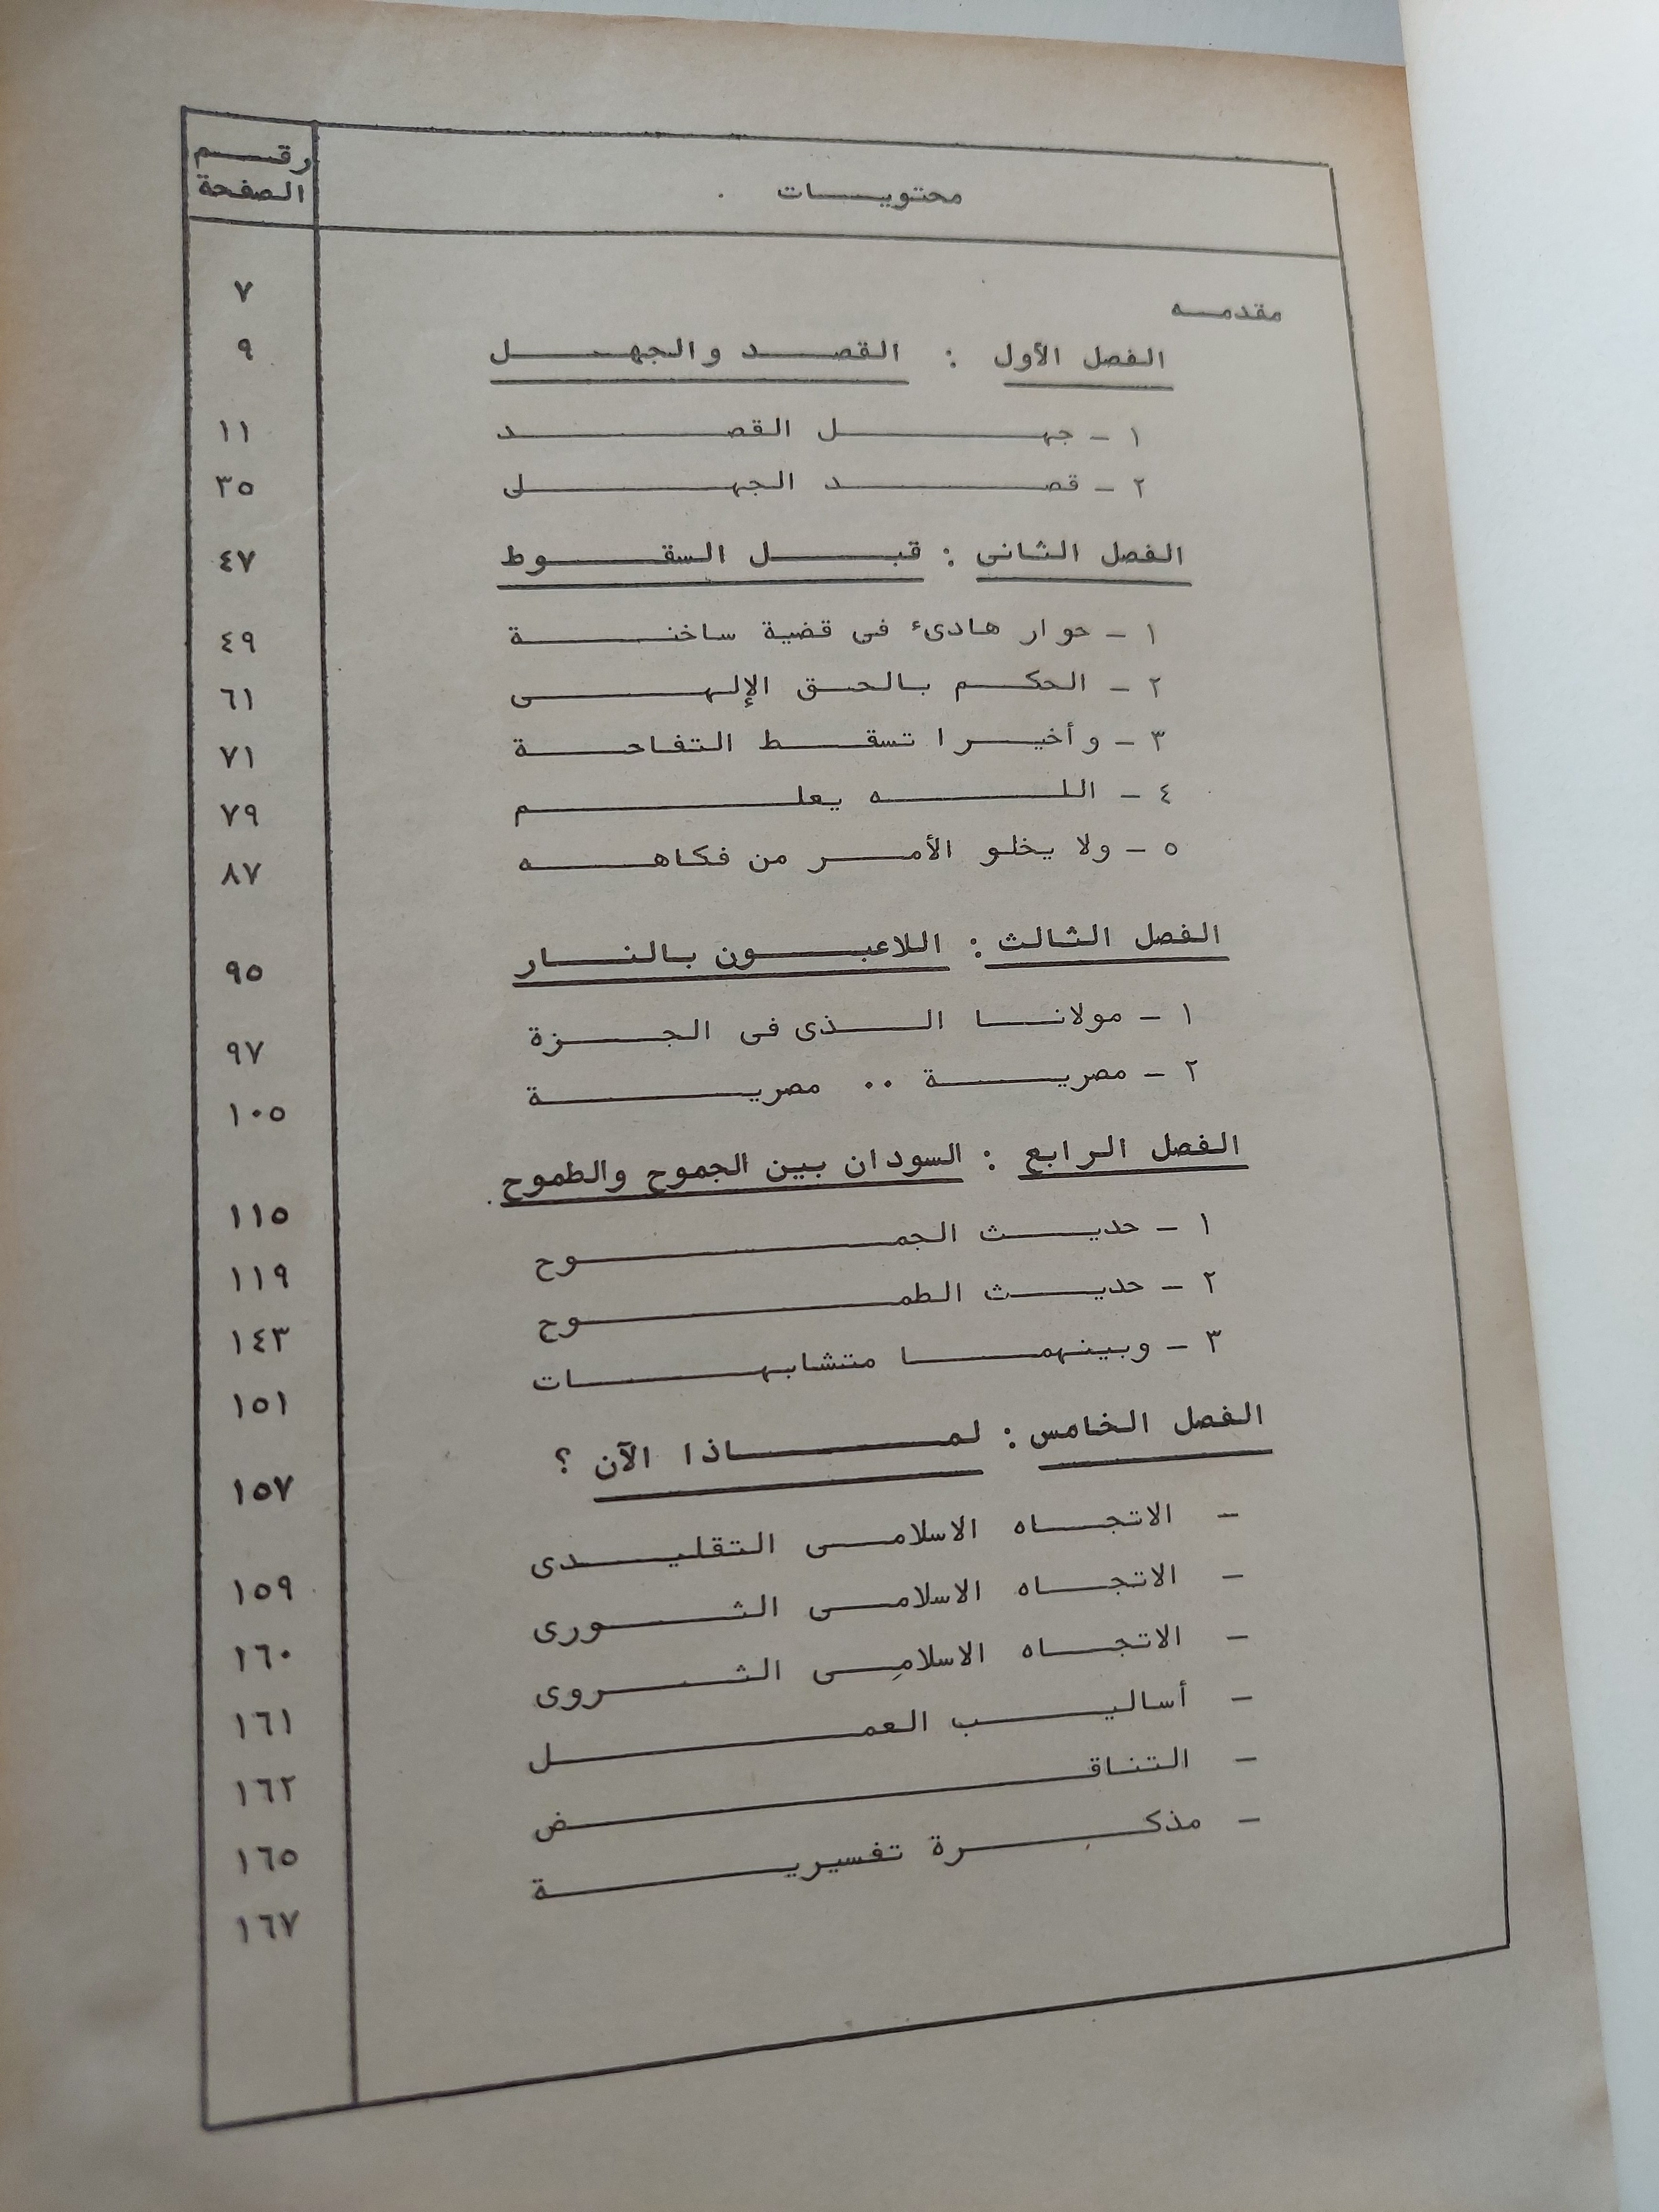 محتويات رقم الصفحة
مقدمه ٧
الفصل الأول : القصد والجهل ٩
١ - جهل القصد ١١
٢ - قصد الجهلى ٣٥
الفصل الثانى : قبل السقوط ٤٧
١ - حوار هادىء فى قضية ساخنة ٤٩
٢ - الحكم بالحق الإلهى ٦١
٣ - وأخيرا تسقط التفاحة ٧١
٤ - الله يعلم ٧٩
٥ - ولا يخلو الأمر من فكاهه ٨٧
الفصل الثالث : اللاعبون بالنار ٩٥
١ - مولانا الذى فى الجزة ٩٧
٢ - مصرية .. مصرية ١٠٥
الفصل الرابع : السودان بين الجموح والطموح . ١١٥
١ - حديث الجموح ١١٩
٢ - حديث الطموح ١٤٣
٣ - وبينهما متشابهات ١٥١
الفصل الخامس : لماذا الآن ؟ ١٥٧
- الاتجاه الاسلامى التقليدى ١٥٩
- الاتجاه الاسلامى الثورى ١٦٠
- الاتجاه الاسلامى الثروى ١٦١
- أساليب العمل ١٦٢
- التناقض ١٦٥
- مذكرة تفسيرية ١٦٧